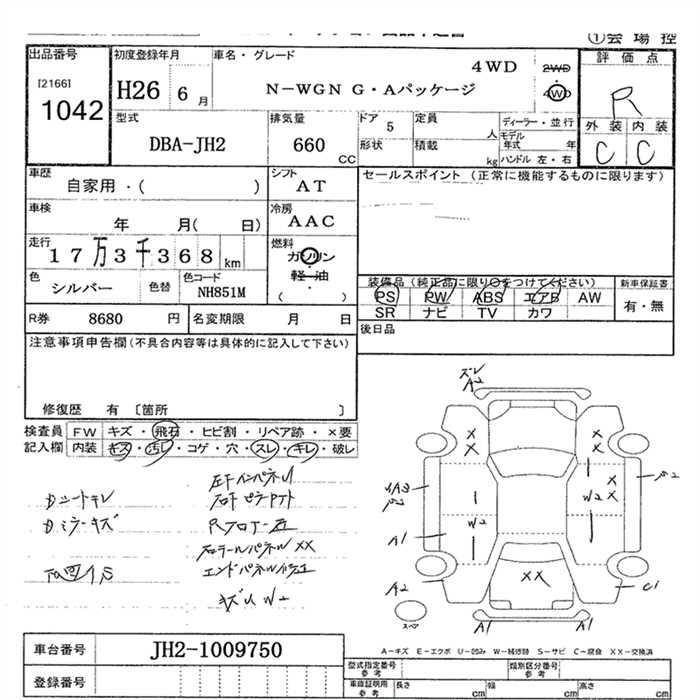 ①会場控
出品番号
[2166]
1042
初度登録年月
H26 6月
車名・グレード
4WD
N-WGN G・Aパッケージ
2WD
4WD
評価点
R
外装 内装
C C
型式
DBA-JH2
排気量
660 CC
ドア 5
形状
定員 人
積載 kg
ディーラー・並行
モデル年式 年
ハンドル 左・右
車歴
自家用・( )
シフト
AT
車検
年 月( 日)
冷房
AAC
走行
17万3千368 km
燃料
ガソリン
軽・油
( )
色
シルバー
色替
色コード
NH851M
R券 8680 円
名変期限 月 日
セールスポイント (正常に機能するものに限ります)
装備品 (純正品に限り○をつけてください)
PS PW ABS エアB AW
SR ナビ TV カワ
新車保証書
有・無
後日品
注意事項申告欄(不具合内容等は具体的に記入して下さい)
修復歴 有 〔箇所 〕
検査員 FW キズ・飛石・ヒビ割・リペア跡・×要
記入欄 内装 キズ・汚レ・コゲ・穴・スレ・キレ・破レ
Dシートキレ
Dミラーキズ
エンドパネル
キズ W2
ズレ
A2
X X
X X
X X
W2
W2
XX
A1
A2
C1
A1
A1
スペア
A-キズ E-エクボ U-凹み W-補修跡 S-サビ C-腐食 XX-交換済
車台番号 JH2-1009750
登録番号
型式指定番号
参考
類別区分番号
参考
車庫証明用
参考
長さ cm 幅 cm 高さ cm